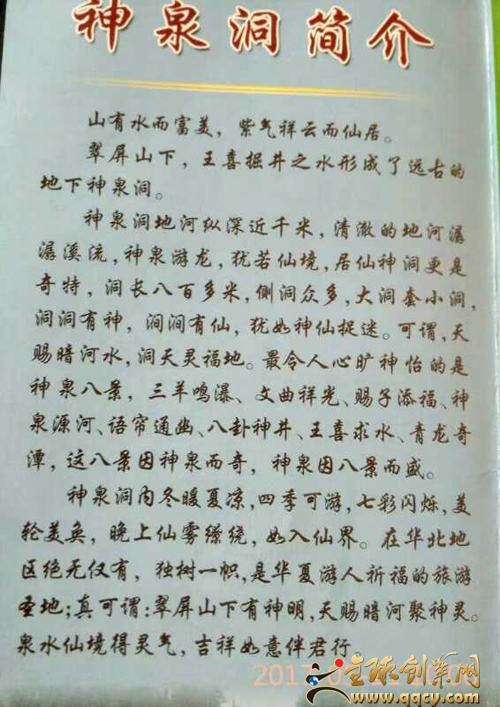 神泉洞简介
山有水而富美，紫气祥云而仙居。
翠屏山下，王喜掘井之水形成了远古的
地下神泉洞。
神泉洞地河纵深近千米，清澈的地河潺
潺溪流，神泉游龙，犹若仙境，居仙神洞更是
奇特，洞长八百多米，侧洞众多，大洞套小洞，
洞洞有神，涧涧有仙，犹如神仙捉迷。可谓，天
赐暗河水，洞天灵福地。最令人心旷神怡的是
神泉八景，三羊鸣瀑、文曲祥光、赐子添福、神
泉源河、语帘通幽、八卦神井、王喜求水、青龙奇
潭，这八景因神泉而奇，神泉因八景而盛。
神泉洞内冬暖夏凉，四季可游，七彩闪烁，美
轮美奂，晚上仙雾缭绕，如入仙界。在华北地
区绝无仅有，独树一帜，是华夏游人祈福的旅游
圣地；真可谓：翠屏山下有神明，天赐暗河聚神灵。
泉水仙境得灵气，吉祥如意伴君行。
全球创业网
www.qqcy.com